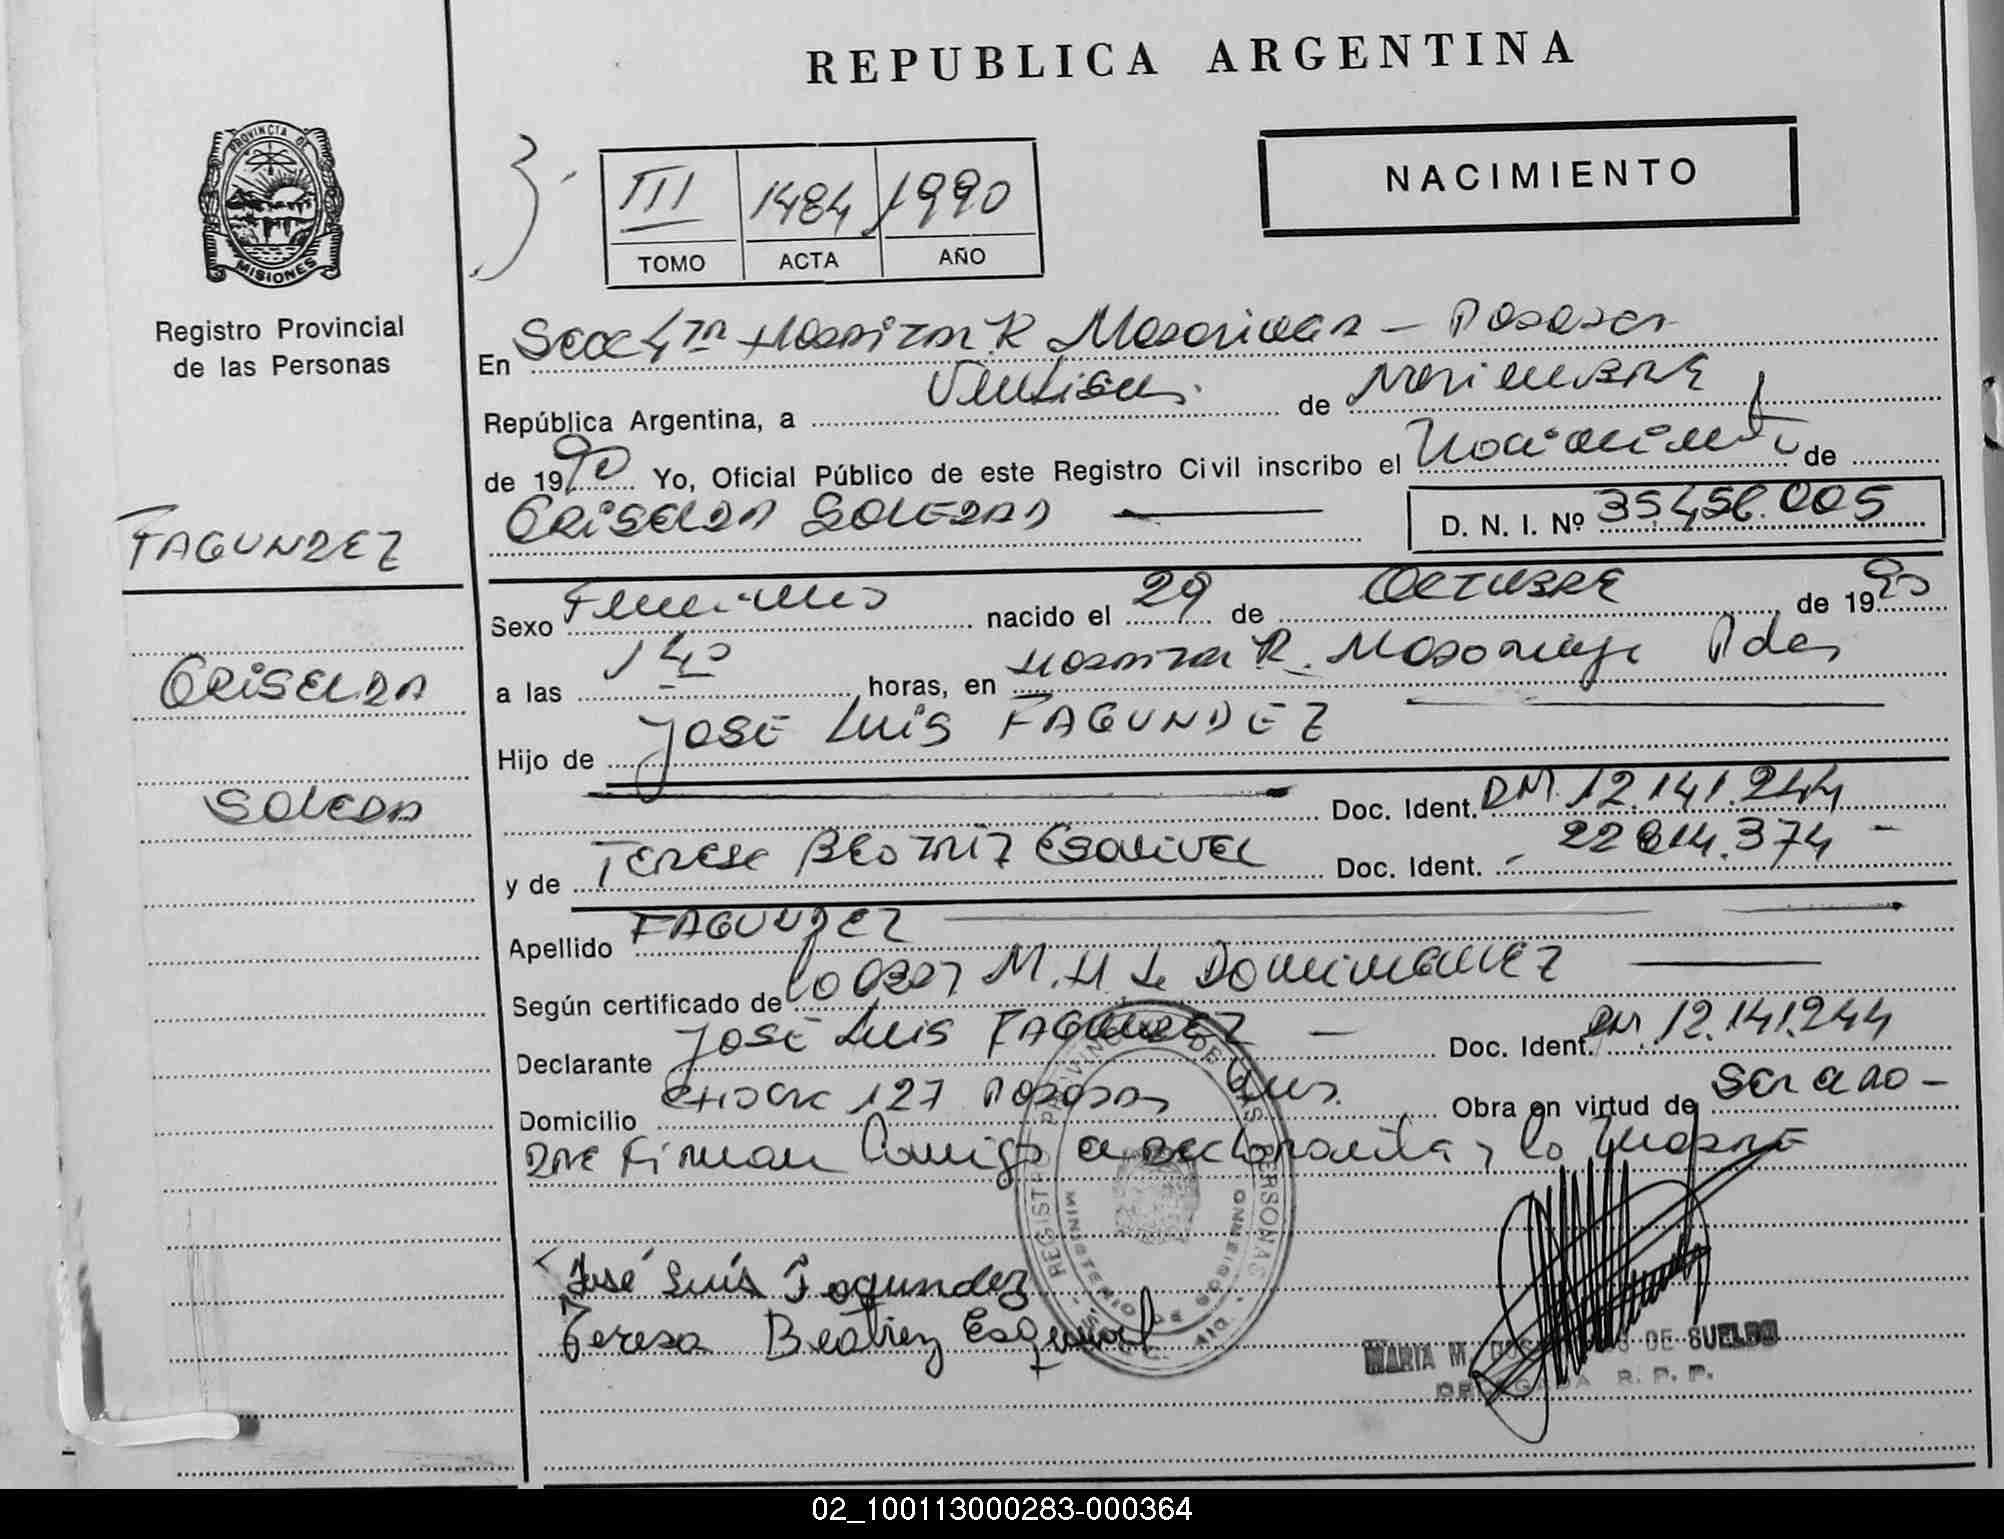 REPUBLICA ARGENTINA
PROVINCIA DE
MISIONES
Registro Provincial
de las Personas
III 1484 1990
TOMO ACTA AÑO
NACIMIENTO
En Secc 4ta Hospital R. Madariaga - Posadas
República Argentina, a de Noviembre
de 1990 Yo, Oficial Público de este Registro Civil inscribo el Nacimiento de
GRISELDA SOLEDAD D. N. I. Nº 35.456.005
FAGUNDEZ
GRISELDA
SOLEDAD
Sexo Femenino nacido el 29 de OCTUBRE de 1990
a las 14 horas, en Hospital R. Madariaga Pdas
Hijo de JOSE LUIS FAGUNDEZ
Doc. Ident. DNI 12.141.244
y de TERESA BEATRIZ ESQUIVEL Doc. Ident. 22.614.374 -
Apellido FAGUNDEZ
Según certificado de M. H. de DOMINGUEZ
Declarante JOSÉ LUIS FAGUNDEZ - Doc. Ident. DNI 12.141.244
Domicilio 127 Posadas Mns. Obra en virtud de ser el pa-
dre Firman Conmigo el declarante y la madre
José Luis Fagundez
Teresa Beatriz Esquivel
REGISTRO PROVINCIAL DE LAS PERSONAS
MINISTERIO DE GOBIERNO
MARIA M. DE SUELDO
DELEGADA R. P. P.
02_100113000283-000364